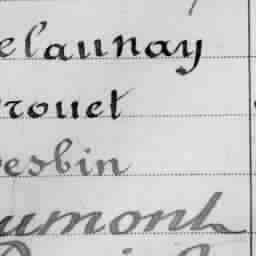 elaunay
rouet
esbin
umont